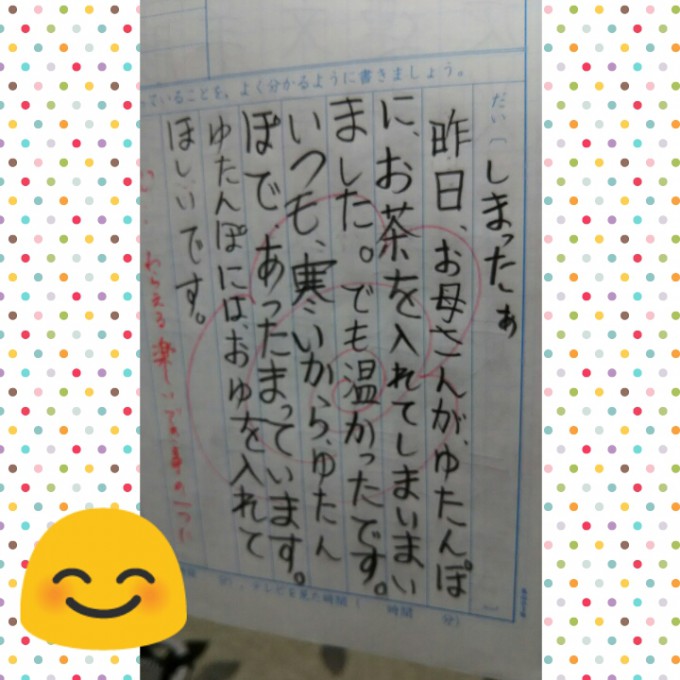 ていることを、よく分かるように書きましょう。
だい（しまったぁ）
昨日、お母さんが、ゆたんぽ
に、お茶を入れてしまいまい
ました。でも温かったです。
いつも、寒いから、ゆたん
ぽで、あったまっています。
ゆたんぽには、おゆを入れて
ほしいです。
わらえる楽しい
分）、テレビを見た時間（ 時間 分）